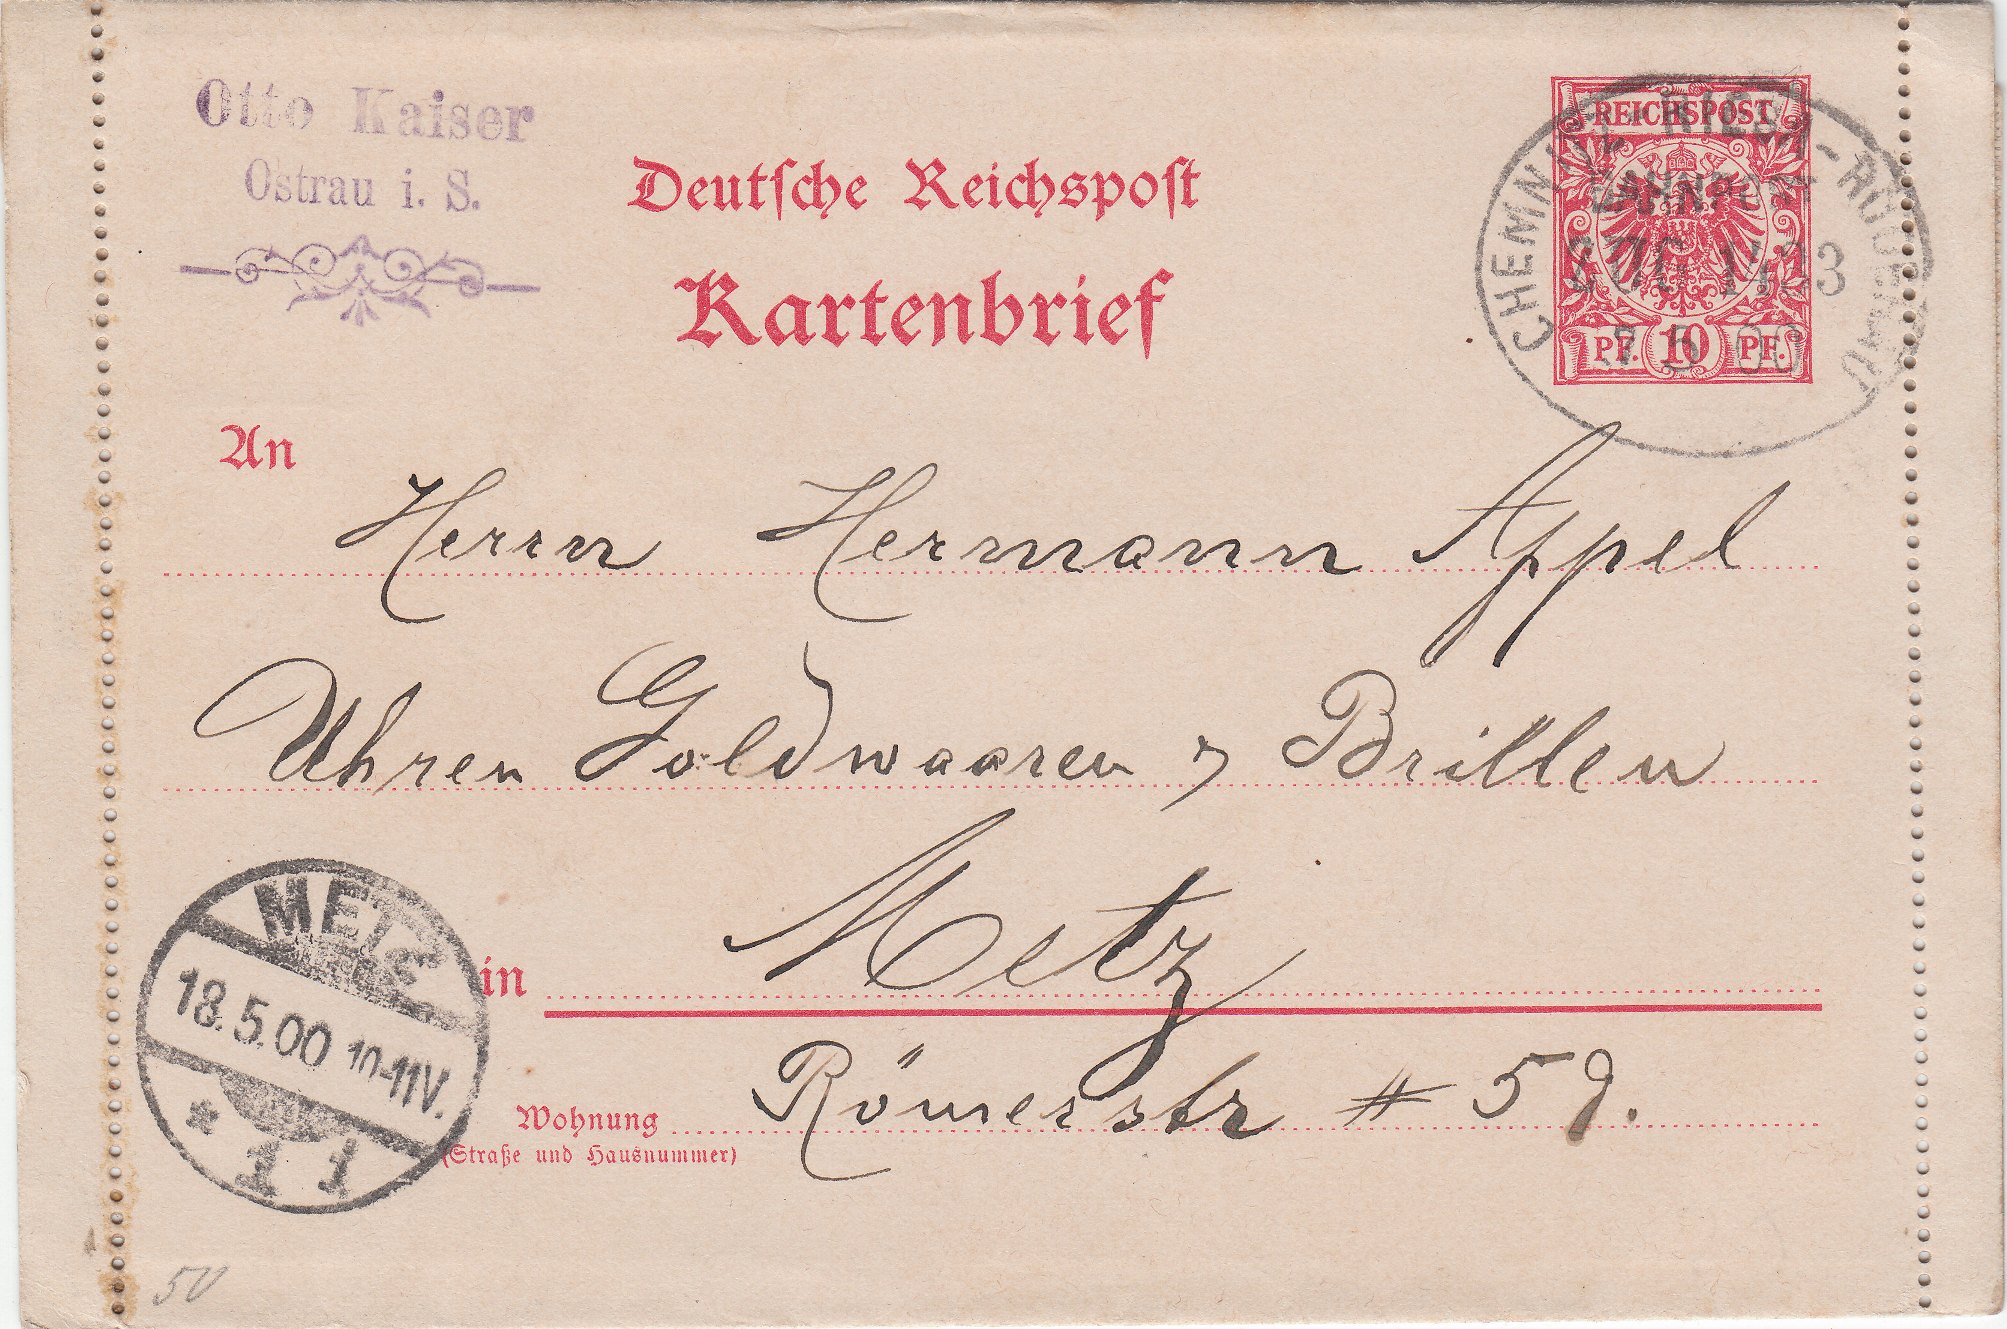 Otto Kaiser
Ostrau i. S.
Deutsche Reichspost
Kartenbrief
REICHSPOST
PF. 10 PF.
CHEMNITZ - RIESA - RÖDERAU
BAHNPOST
ZUG 1423
17 5 00
An
Herrn Hermann Appel
Uhren Goldwaaren & Brillen
in Metz
Wohnung Römerstr # 59.
(Straße und Hausnummer)
METZ
18.5.00 10-11V.
* 1 1
50